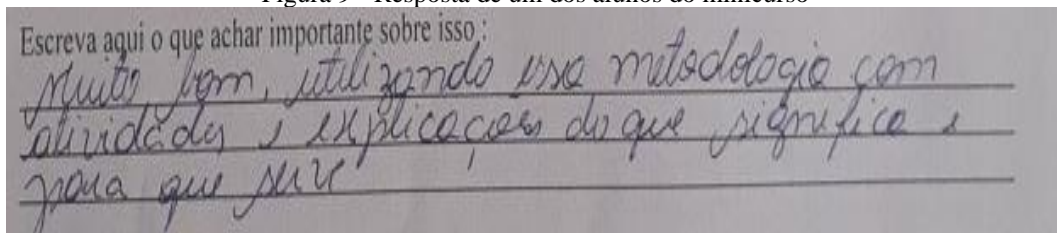 Figura 9 - Resposta de um dos alunos do minicurso
Escreva aqui o que achar importante sobre isso :
Muito bom, utilizando essa metodologia com
atividades e explicações do que significa e
para que serve